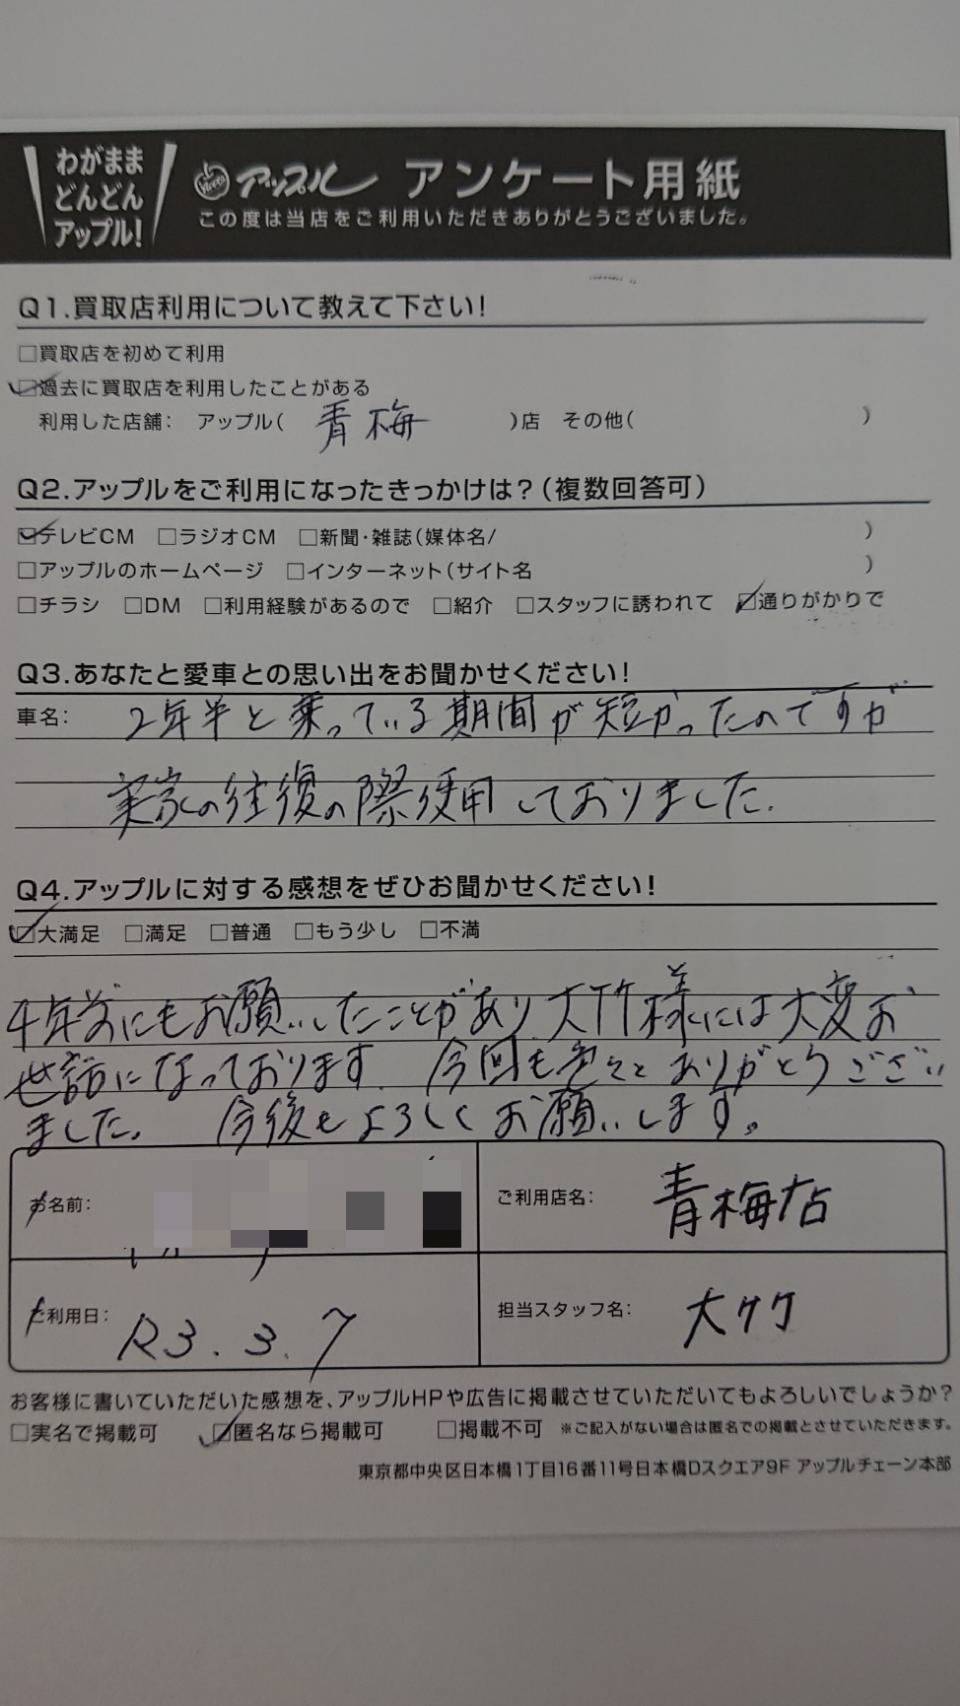 わがまま
どんどん
アップル!
アップル アンケート用紙
この度は当店をご利用いただきありがとうございました。
Q1.買取店利用について教えて下さい!
□買取店を初めて利用
☑過去に買取店を利用したことがある
利用した店舗: アップル( 青梅 )店 その他( )
Q2.アップルをご利用になったきっかけは?(複数回答可)
☑テレビCM □ラジオCM □新聞・雑誌(媒体名/ )
□アップルのホームページ □インターネット(サイト名 )
□チラシ □DM □利用経験があるので □紹介 □スタッフに誘われて ☑通りがかりで
Q3.あなたと愛車との思い出をお聞かせください!
車名: 2年半と乗っている期間が短かったのですが
実家の往復の際使用しておりました.
Q4.アップルに対する感想をぜひお聞かせください!
☑大満足 □満足 □普通 □もう少し □不満
4年前にもお願いしたことがあり大竹様には大変お
世話になっております. 今回も色々とありがとうござい
ました. 今後もよろしくお願いします。
お名前:
ご利用店名: 青梅店
ご利用日: R3.3.7
担当スタッフ名: 大竹
お客様に書いていただいた感想を、アップルHPや広告に掲載させていただいてもよろしいでしょうか?
□実名で掲載可 ☑匿名なら掲載可 □掲載不可 ※ご記入がない場合は匿名での掲載とさせていただきます。
東京都中央区日本橋1丁目16番11号日本橋Dスクエア9F アップルチェーン本部